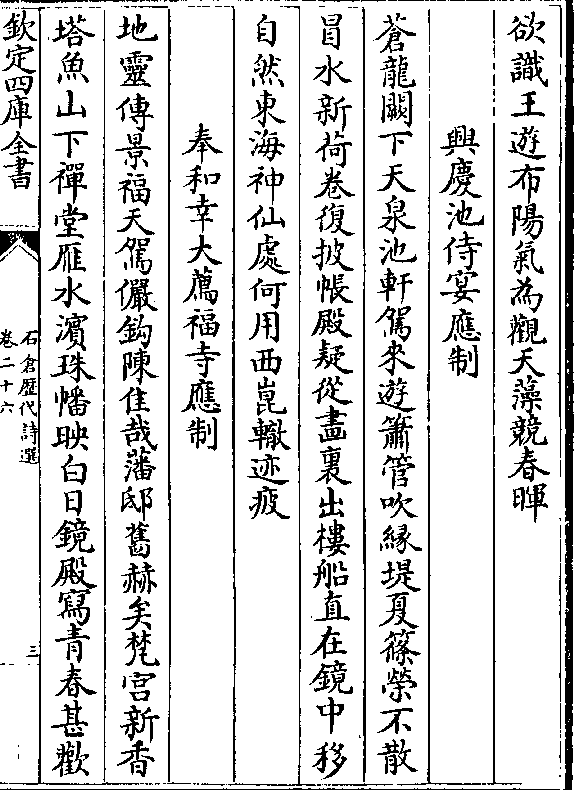 欲識王遊布陽氣為觀天藻競春暉
興慶池侍宴應制
蒼龍闕下天泉池軒駕來遊簫管吹縁堤夏篠縈不散
冒水新荷卷復披帳殿疑從畫裏出樓船直在鏡中移
自然東海神仙處何用西崑轍迹疲
奉和幸大薦福寺應制
地靈傳景福天駕儼鈎陳佳哉藩邸舊赫矣梵宫新香
塔魚山下禪堂雁水濱珠幡映白日鏡殿寫青春甚歡
欽定四庫全書
石倉歷代詩選
卷二十六
三